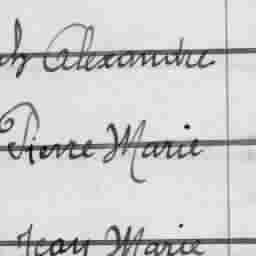 h Alexandre
Pierre Marie
Jean Marie